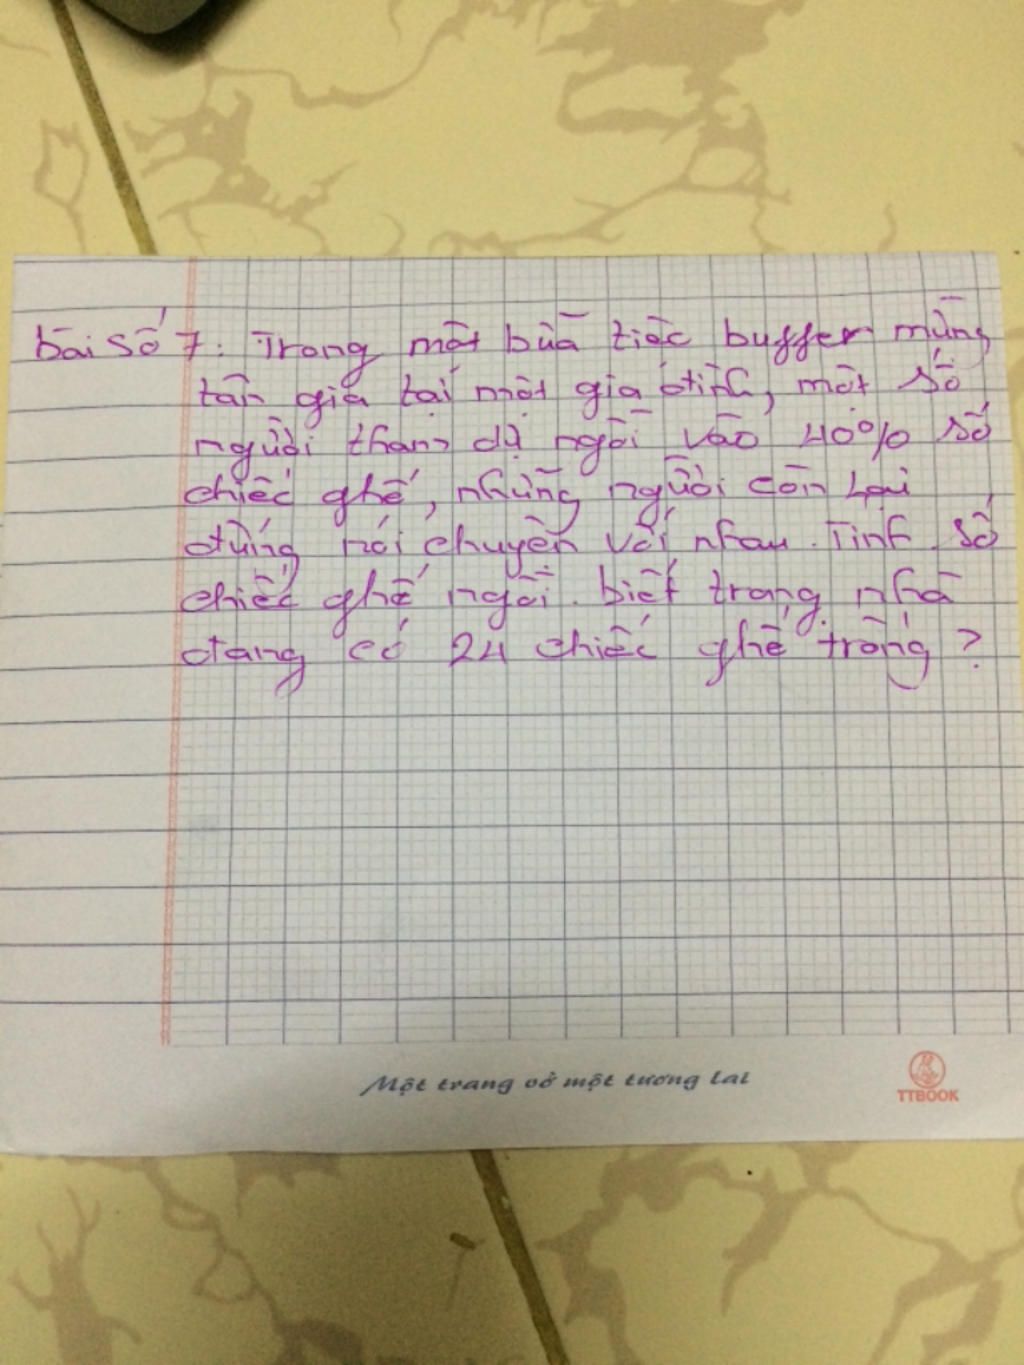 bài số 7: Trong một bữa tiệc buffer mừng
tân gia tại một gia đình, một số
người tham dự ngồi vào 40% số
chiếc ghế, những người còn lại
đứng nói chuyện với nhau. Tính số
chiếc ghế ngồi. biết trong nhà
đang có 24 chiếc ghế trống?
Một trang vở một tương lai
TTBOOK